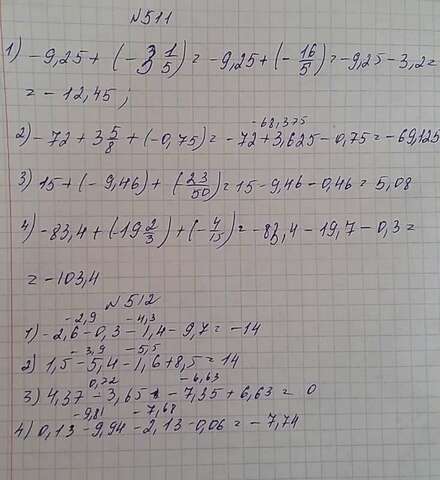 №511
1) -9,25 + (-3 1/5) = -9,25 + (-16/5) = -9,25 - 3,2 =
= -12,45;
-68,375
2) -72 + 3 5/8 + (-0,75) = -72 + 3,625 - 0,75 = -69,125
3) 15 + (-9,46) + (-23/50) = 15 - 9,46 - 0,46 = 5,08
4) -83,4 + (-19 2/3) + (-4/15) = -83,4 - 19,7 - 0,3 =
= -103,4
№512
-2,9 -4,3
1) -2,6 - 0,3 - 1,4 - 9,7 = -14
-3,9 -5,5
2) 1,5 - 5,4 - 1,6 + 8,5 = 14
0,72 -6,63
3) 4,37 - 3,65 - 7,35 + 6,63 = 0
-9,81 -7,68
4) 0,13 - 9,94 - 2,13 - 0,06 = -7,74